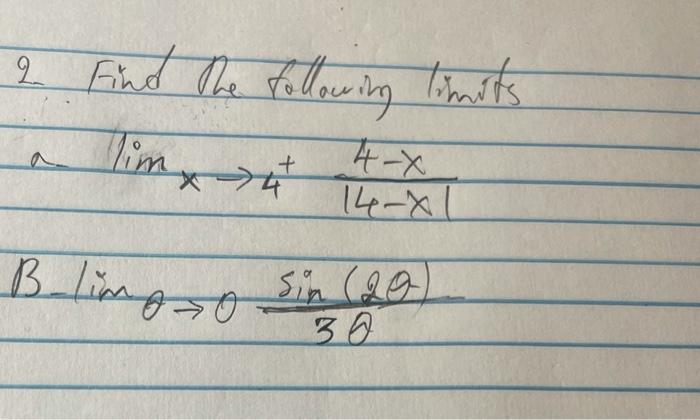 2 Find the following limits
a lim x → 4⁺ 4-x / |4-x|
B- lim θ → 0 sin(2θ) / 3θ